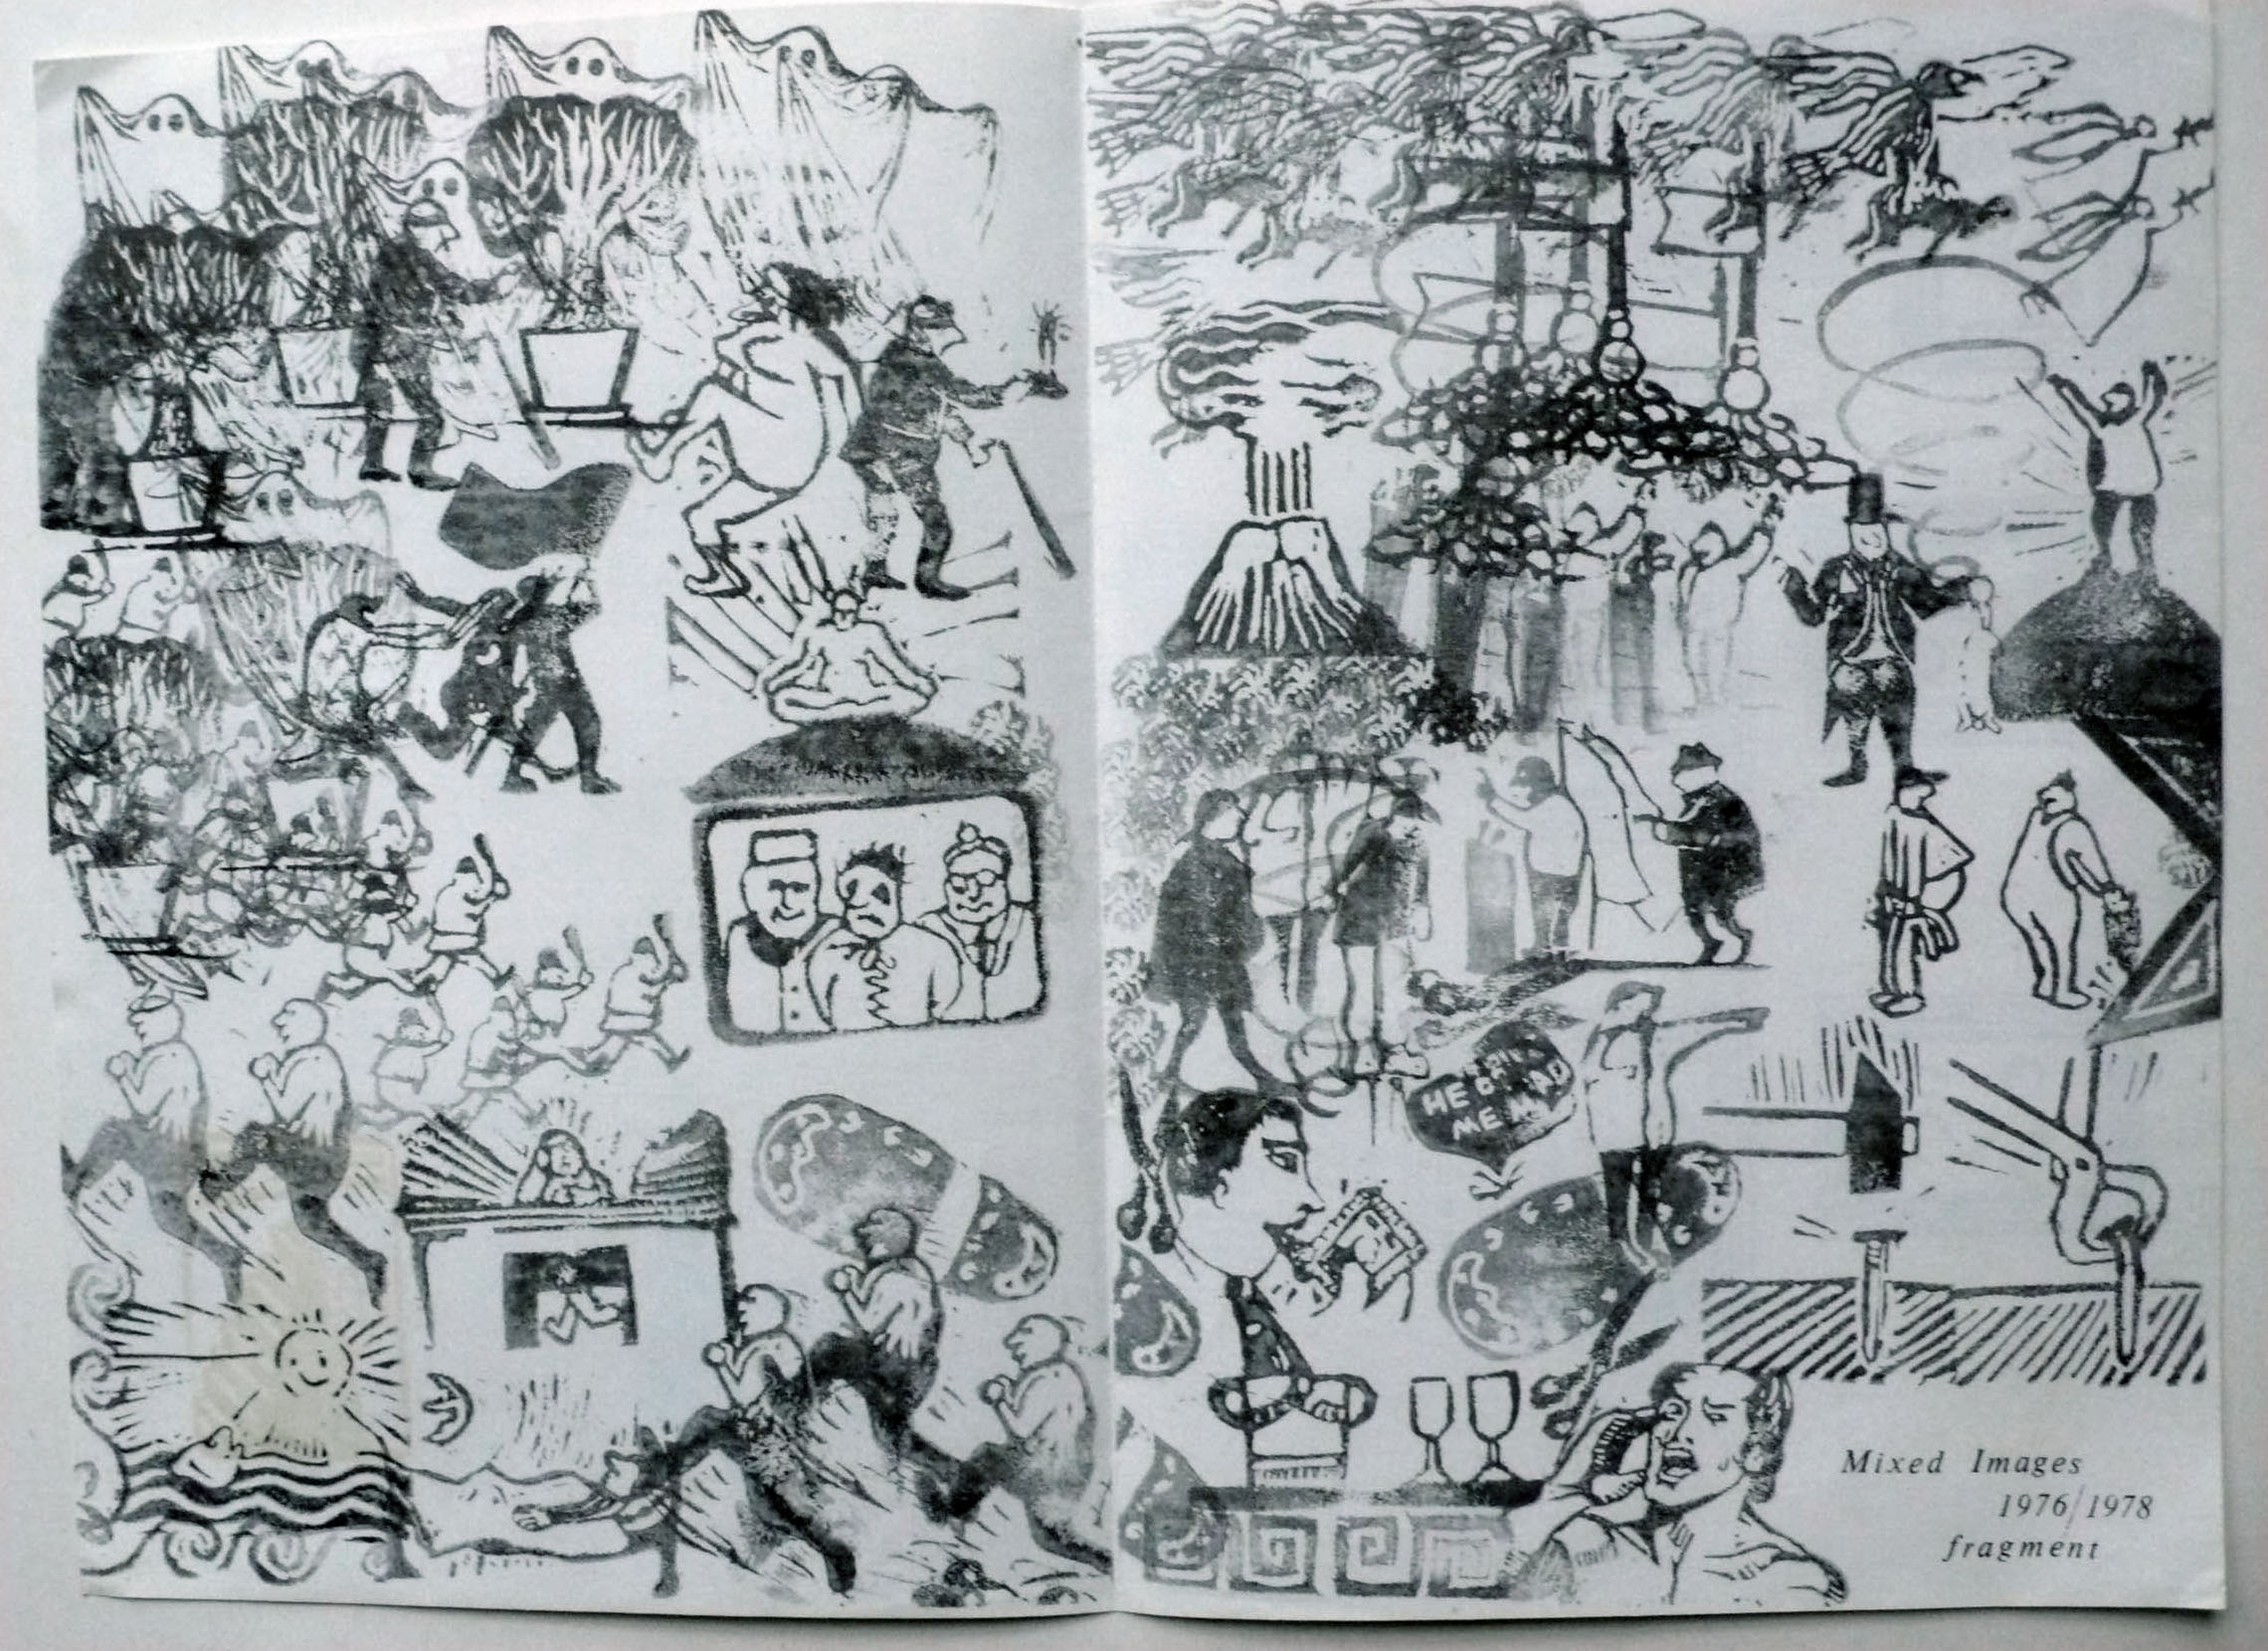 HE
ME MAD
Mixed Images
1976/1978
fragment